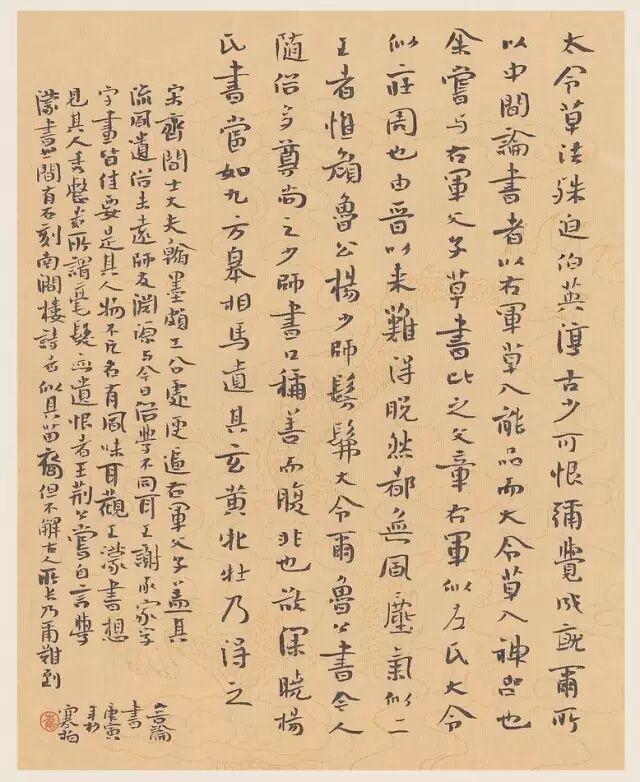 太令草法殊迫伯英淳古少可恨彌覺成就爾所
以中間論書者以右軍草入能品而大令草入神品也
余嘗與右軍父子草書比之文章右軍似左氏大令
似莊周也由晉以來難得脫然都無風塵氣似二
王者惟顏魯公楊少師髣髴大令爾魯公書今人
隨俗多尊尚之少師書口稱善而腹非也欲深曉楊
氏書當如九方皋相馬遺其玄黃牝牡乃得之
宋齊間士大夫翰墨頗工合處便逼右軍父子蓋其
流風遺俗未遠師友淵源與今日俗學不同耳王謝承家字
字畫皆佳要是其人物不凡各有風味耳觀王濛書想
見其人秀整幾所謂毫髮無遺恨者王荊公嘗自言學
濛書世間有石刻南澗樓詩者似其苗裔但不解古人所長乃爾難到
論
書
庚寅
寒柏